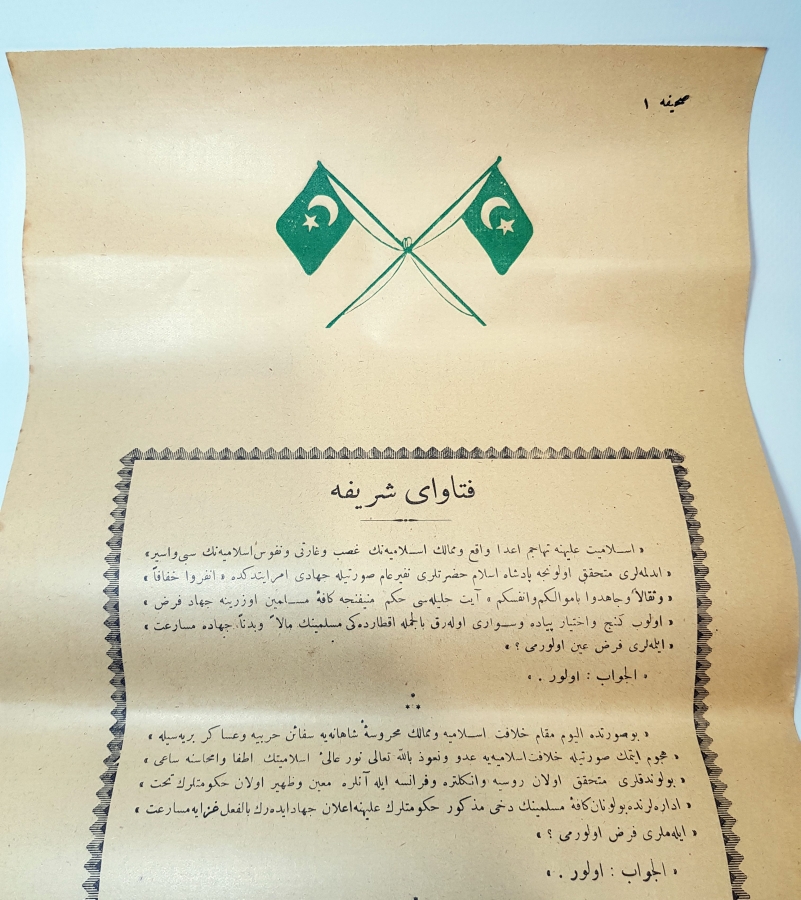 صحیفه ١
فتاوای شریفه
« اسلامیت علیهنه تهاجم اعدا واقع وممالك اسلامیه‌نك غصب وغارتی ونفوس اسلامیه‌نك سبی واسیر »
« ایدلمه‌لری متحقق اولونجه پادشاه اسلام حضرتلری نفیر عام صورتیله جهادی امر ایتدکده « انفروا خفافاً »
« وثقالاً وجاهدوا باموالکم وانفسکم » آیت جلیله‌سی حکم منیفنجه کافهٔ مسلمین اوزرینه جهاد فرض »
« اولوب کنج واختیار پیاده وسواری اوله‌رق بالجمله اقطارده‌کی مسلمینك مالاً وبدناً جهاده مسارعت »
« ایله‌لری فرض عین اولورمی ؟ »
« الجواب : اولور . »
« بوصورتده الیوم مقام خلافت اسلامیه وممالك محروسهٔ شاهانه‌یه سفائن حربیه وعساکر بریه‌سیله »
« هجوم ایتمك صورتیله خلافت اسلامیه‌یه عدو ونعوذ بالله تعالی نور عالیٔ اسلامیتك اطفا وامحاسنه ساعی »
« بولوندقلری متحقق اولان روسیه وانکلتره وفرانسه ایله آنلره معین وظهیر اولان حکومتلرك تحت »
« اداره‌لرنده بولونان کافهٔ مسلمینك دخی مذکور حکومتلرك علیهنه اعلان جهاد ایده‌رك بالفعل غزایه مسارعت »
« ایله‌ملری فرض اولورمی ؟ »
« الجواب : اولور . »